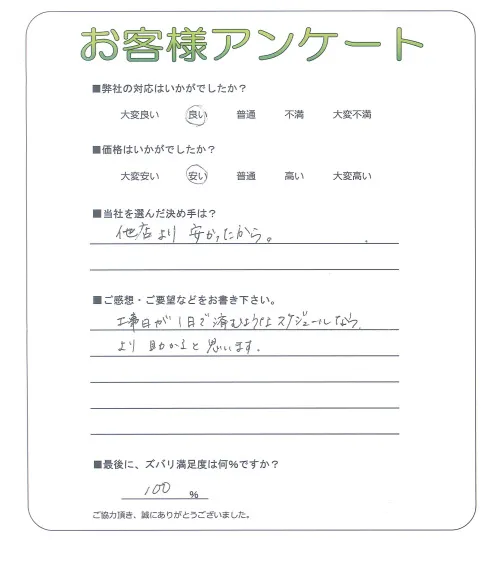 お客様アンケート
■弊社の対応はいかがでしたか?
大変良い 良い 普通 不満 大変不満
■価格はいかがでしたか?
大変安い 安い 普通 高い 大変高い
■当社を選んだ決め手は?
他店より 安かったから。
■ご感想・ご要望などをお書き下さい。
工事日が1日で済むようなスケジュールなら、
より助かると思います。
■最後に、ズバリ満足度は何%ですか?
100 %
ご協力頂き、誠にありがとうございました。